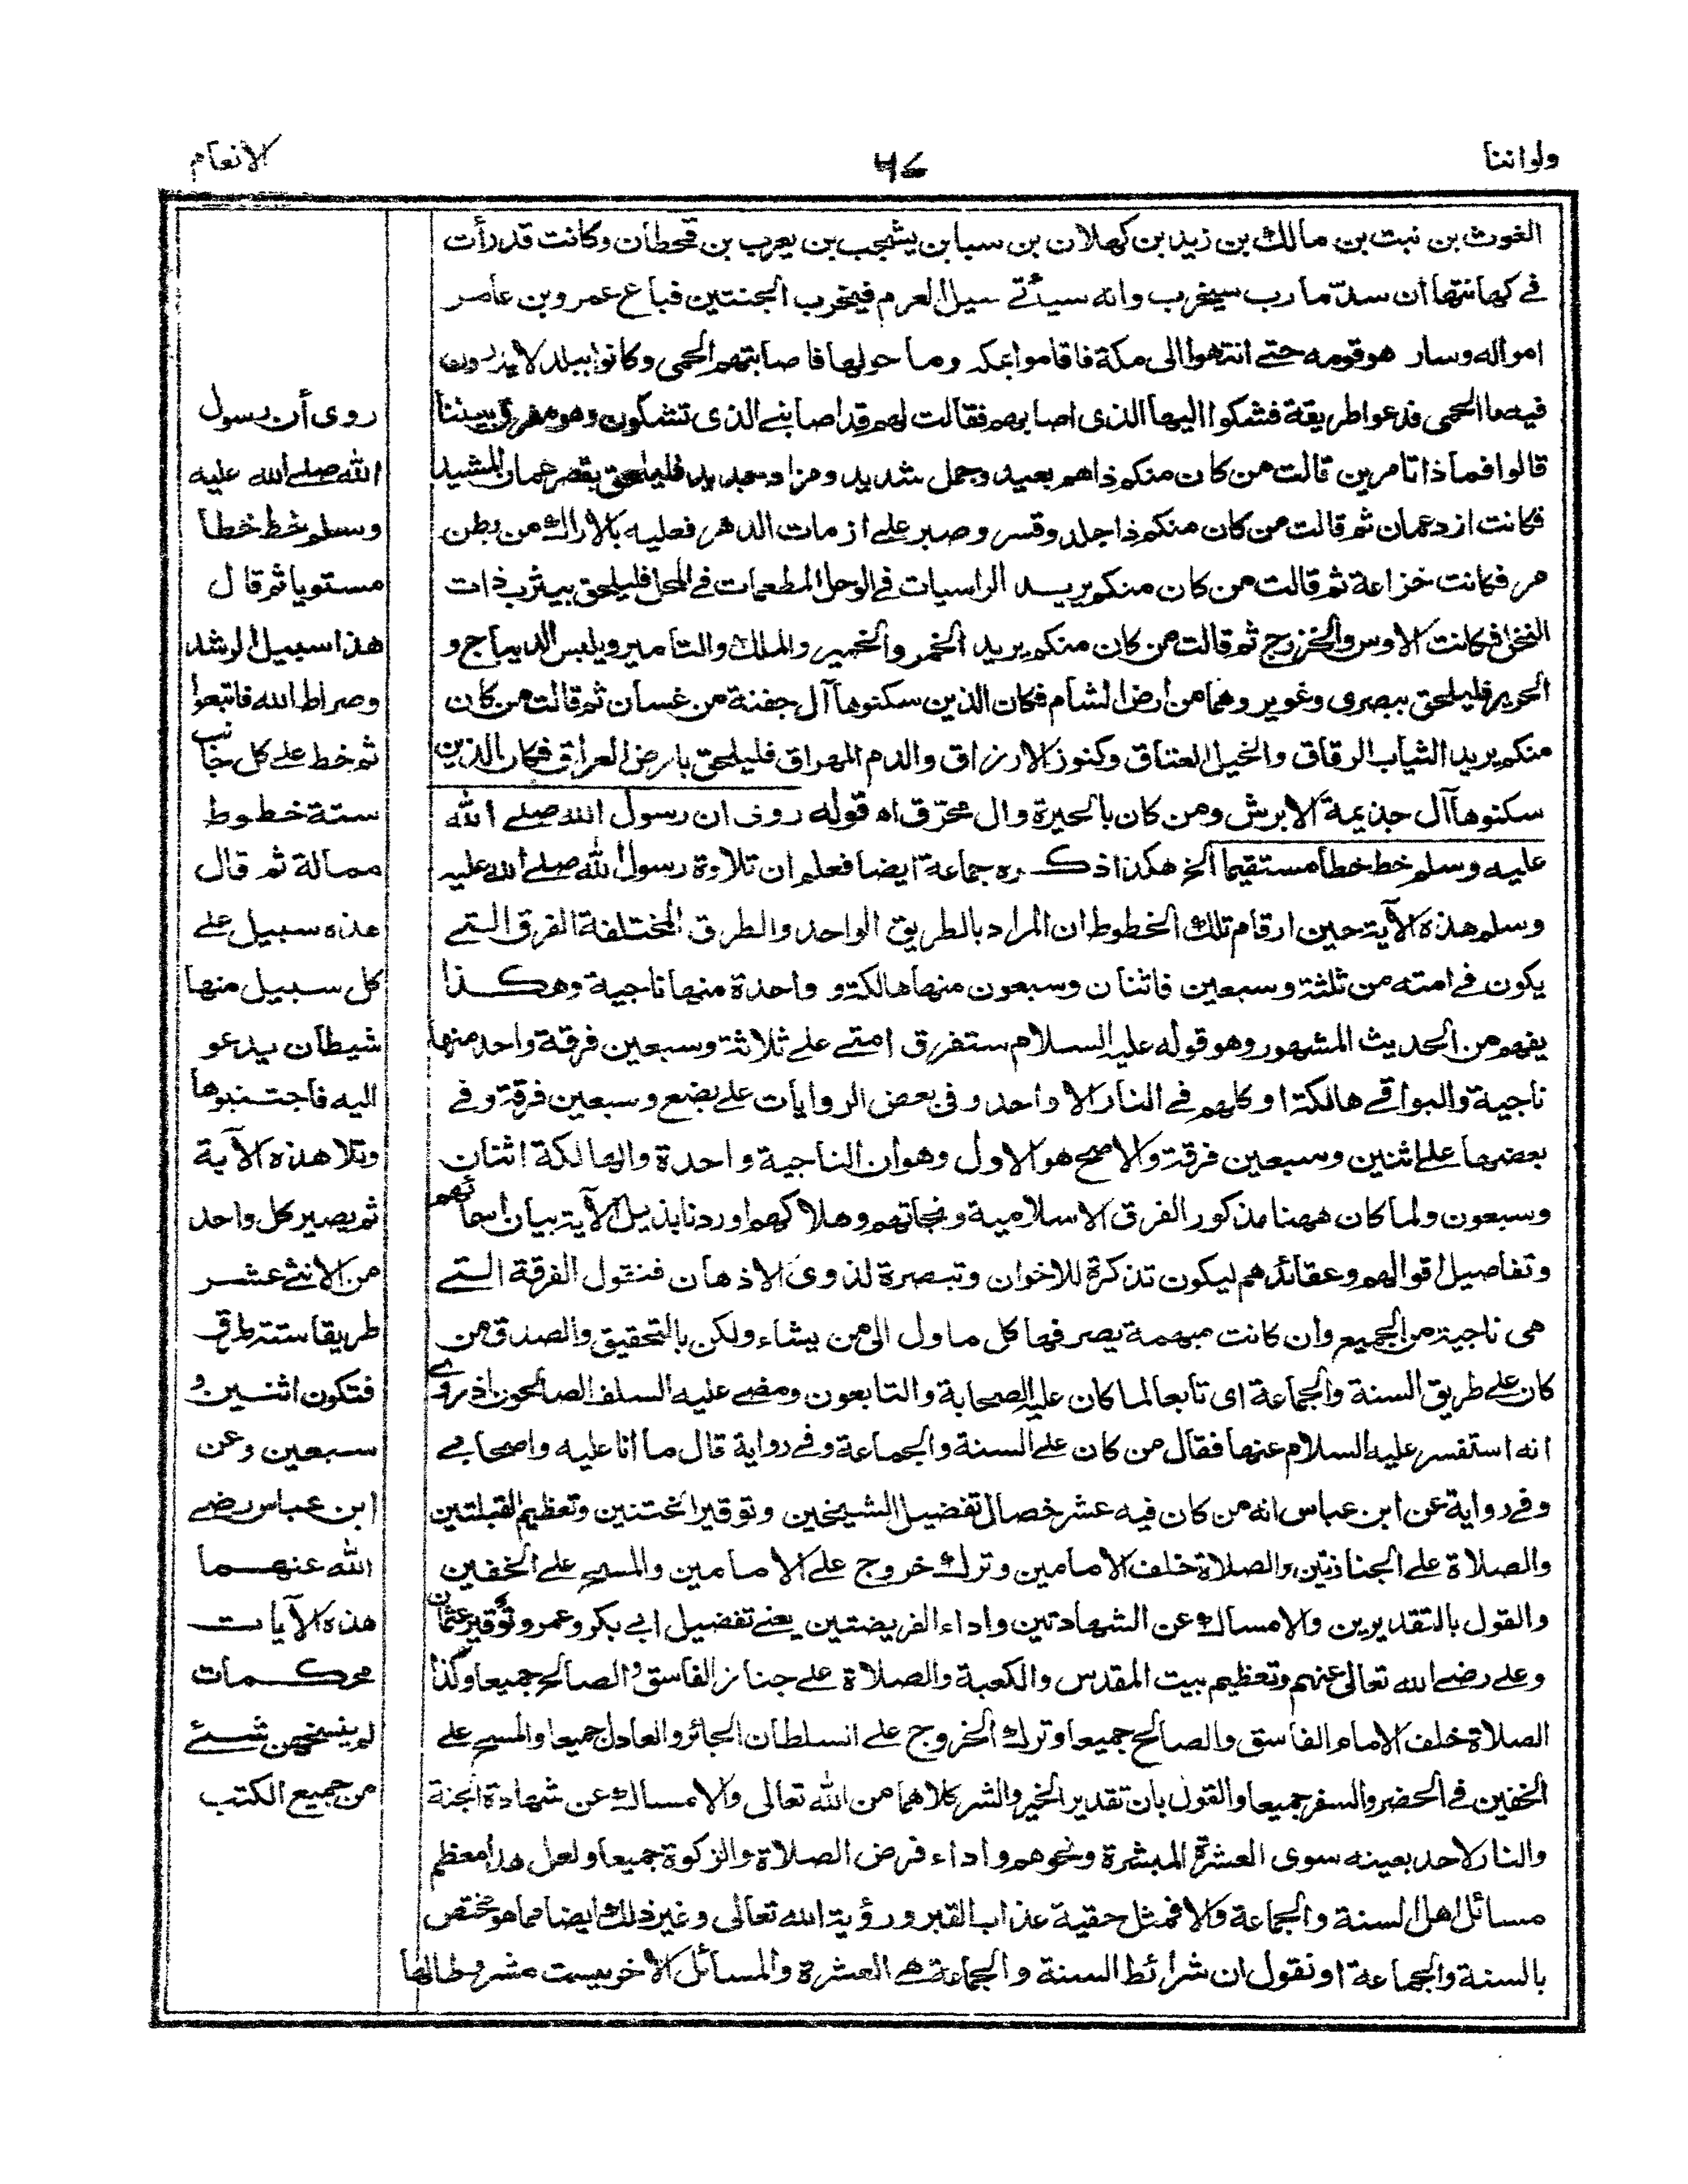 ولواننا
٤٧
الانعام
الغوث بن نبت بن مالك بن زيد بن كهلان بن سبا بن يشجب بن يعرب بن قحطان وكانت قد رأت
فى كهانتها ان سدّ مارب سيخرب وانه سيأتى سيل العرم فيخرب الجنتين فباع عمرو بن عامر
امواله وسار هو وقومه حتى انتهوا الى مكة فاقاموا بمكة وما حولها فاصابتهم الحمى وكانوا ببلد لا يدرون
فيه ما الحمى فدعوا طريقة فشكوا اليها الذى اصابهم فقالت لهم قد اصابنى الذى تشكون وهو مفرق بيننا
قالوا فماذا تامرين قالت من كان منكم ذاهم بعيد وجمل شديد ومزاد جديد فليلحق بقصر عمان المشيد
فكانت ازد عمان ثم قالت من كان منكم ذا جلد وقسر وصبر على ازمات الدهر فعليه بالاراك من بطن
مر فكانت خزاعة ثم قالت من كان منكم يريد الراسيات فى الوحل المطعمات فى المحل فليلحق بيثرب ذات
النخل فكانت الاوس والخزرج ثم قالت من كان منكم يريد الخمر والخمير والملك والتامير ويلبس الديباج و
الحرير فليلحق ببصرى وغوير وهما من أرض الشام فكان الذين سكنوها آل جفنة من غسان ثم قالت من كان
منكم يريد الثياب الرقاق والخيل العتاق وكنوز الارزاق والدم المهراق فليلحق بارض العراق فكان الذين
سكنوها آل جذيمة الابرش ومن كان بالحيرة وال محرّق اه قوله روى ان رسول الله صلى الله
عليه وسلم خط خطا مستقيما الخ هكذا ذكره جماعة ايضا فعلم ان تلاوة رسول الله صلى الله عليه
وسلم هذه الآية حين ارقام تلك الخطوط ان المراد بالطريق الواحد والطرق المختلفة الفرق التى
يكون فى امته من ثلثة وسبعين فاثنان وسبعون منها هالكة و واحدة منها ناجية وهكذا
يفهم من الحديث المشهور وهو قوله عليه السلام ستفرق امتى على ثلاثة وسبعين فرقة واحد منها
ناجية والبواقى هالكة او كلهم فى النار الا واحد وفى بعض الروايات على بضع وسبعين فرقة وفى
بعضها على اثنين وسبعين فرقة والاصح هو الاول وهو ان الناجية واحدة والهالكة اثنان
وسبعون ولما كان ههنا مذكور الفرق الاسلامية ونجاتهم وهلاكهم اوردنا بذيل الآية بيان اسمائهم
وتفاصيل اقوالهم وعقائدهم ليكون تذكرة للاخوان وتبصرة لذوى الاذهان فنقول الفرقة التى
هى ناجية من الجميع وان كانت مبهمة يصرفها كل ماول الى من يشاء ولكن بالتحقيق والصدق من
كان على طريق السنة والجماعة اى تابعا لما كان عليه الصحابة والتابعون ومضى عليه السلف الصالحون اذ روى
انه استفسر عليه السلام عنها فقال من كان على السنة والجماعة وفى رواية قال ما انا عليه واصحابى
وفى رواية عن ابن عباس انه من كان فيه عشر خصال تفضيل الشيخين وتوقير الختنين وتعظيم القبلتين
والصلاة على الجنازتين والصلاة خلف الامامين وترك خروج على الامامين والمسح على الخفين
والقول بالتقديرين والامساك عن الشهادتين واداء الفريضتين يعنى تفضيل ابى بكر وعمر وتوقير عثمان
وعلى رضى الله تعالى عنهم وتعظيم بيت المقدس والكعبة والصلاة على جنازة الفاسق والصالح جميعا وكذا
الصلاة خلف الامام الفاسق والصالح جميعا وترك الخروج على السلطان الجائر والعادل جميعا والمسح على
الخفين فى الحضر والسفر جميعا والقول بان تقدير الخير والشر كلاهما من الله تعالى والامساك عن شهادة الجنة
والنار لاحد بعينه سوى العشرة المبشرة ونحوهم واداء فرض الصلاة والزكوة جميعا ولعل هذا معظم
مسائل اهل السنة والجماعة والا فمثل حقية عذاب القبر ورؤية الله تعالى وغير ذلك ايضا مما هو مختص
بالسنة والجماعة او نقول ان شرائط السنة والجماعة هى العشرة والمسائل الاخر ليست مشروطا لها
روى أن رسول
الله صلى الله عليه
وسلم خط خطا
مستويا ثم قال
هذا سبيل الرشد
وصراط الله فاتبعوا
ثم خط على كل جانب
ستة خطوط
ممالة ثم قال
هذه سبيل على
كل سبيل منها
شيطان يدعو
اليه فاجتنبوها
وتلا هذه الآية
ثم يصير كل واحد
من الاثنى عشر
طريقا ستة طرق
فتكون اثنين و
سبعين وعن
ابن عباس رضى
الله عنهما
هذه الآيات
محكمات
لم ينسخهن شئ
من جميع الكتب